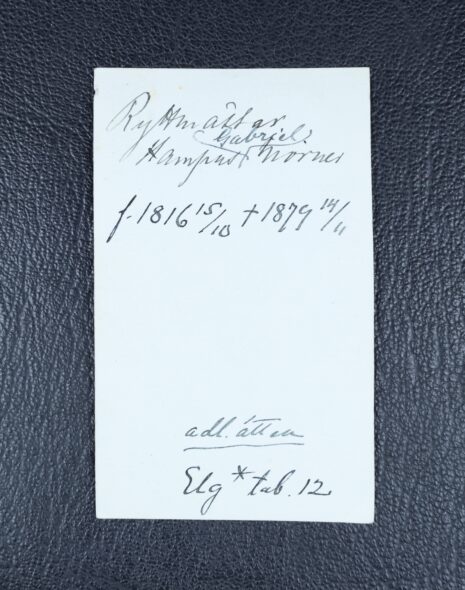 Ryttmästar
Gabriel.
Hampus Mörner
f. 1816 15/10 † 1879 14/11
adl. ätten
Elg * tab. 12